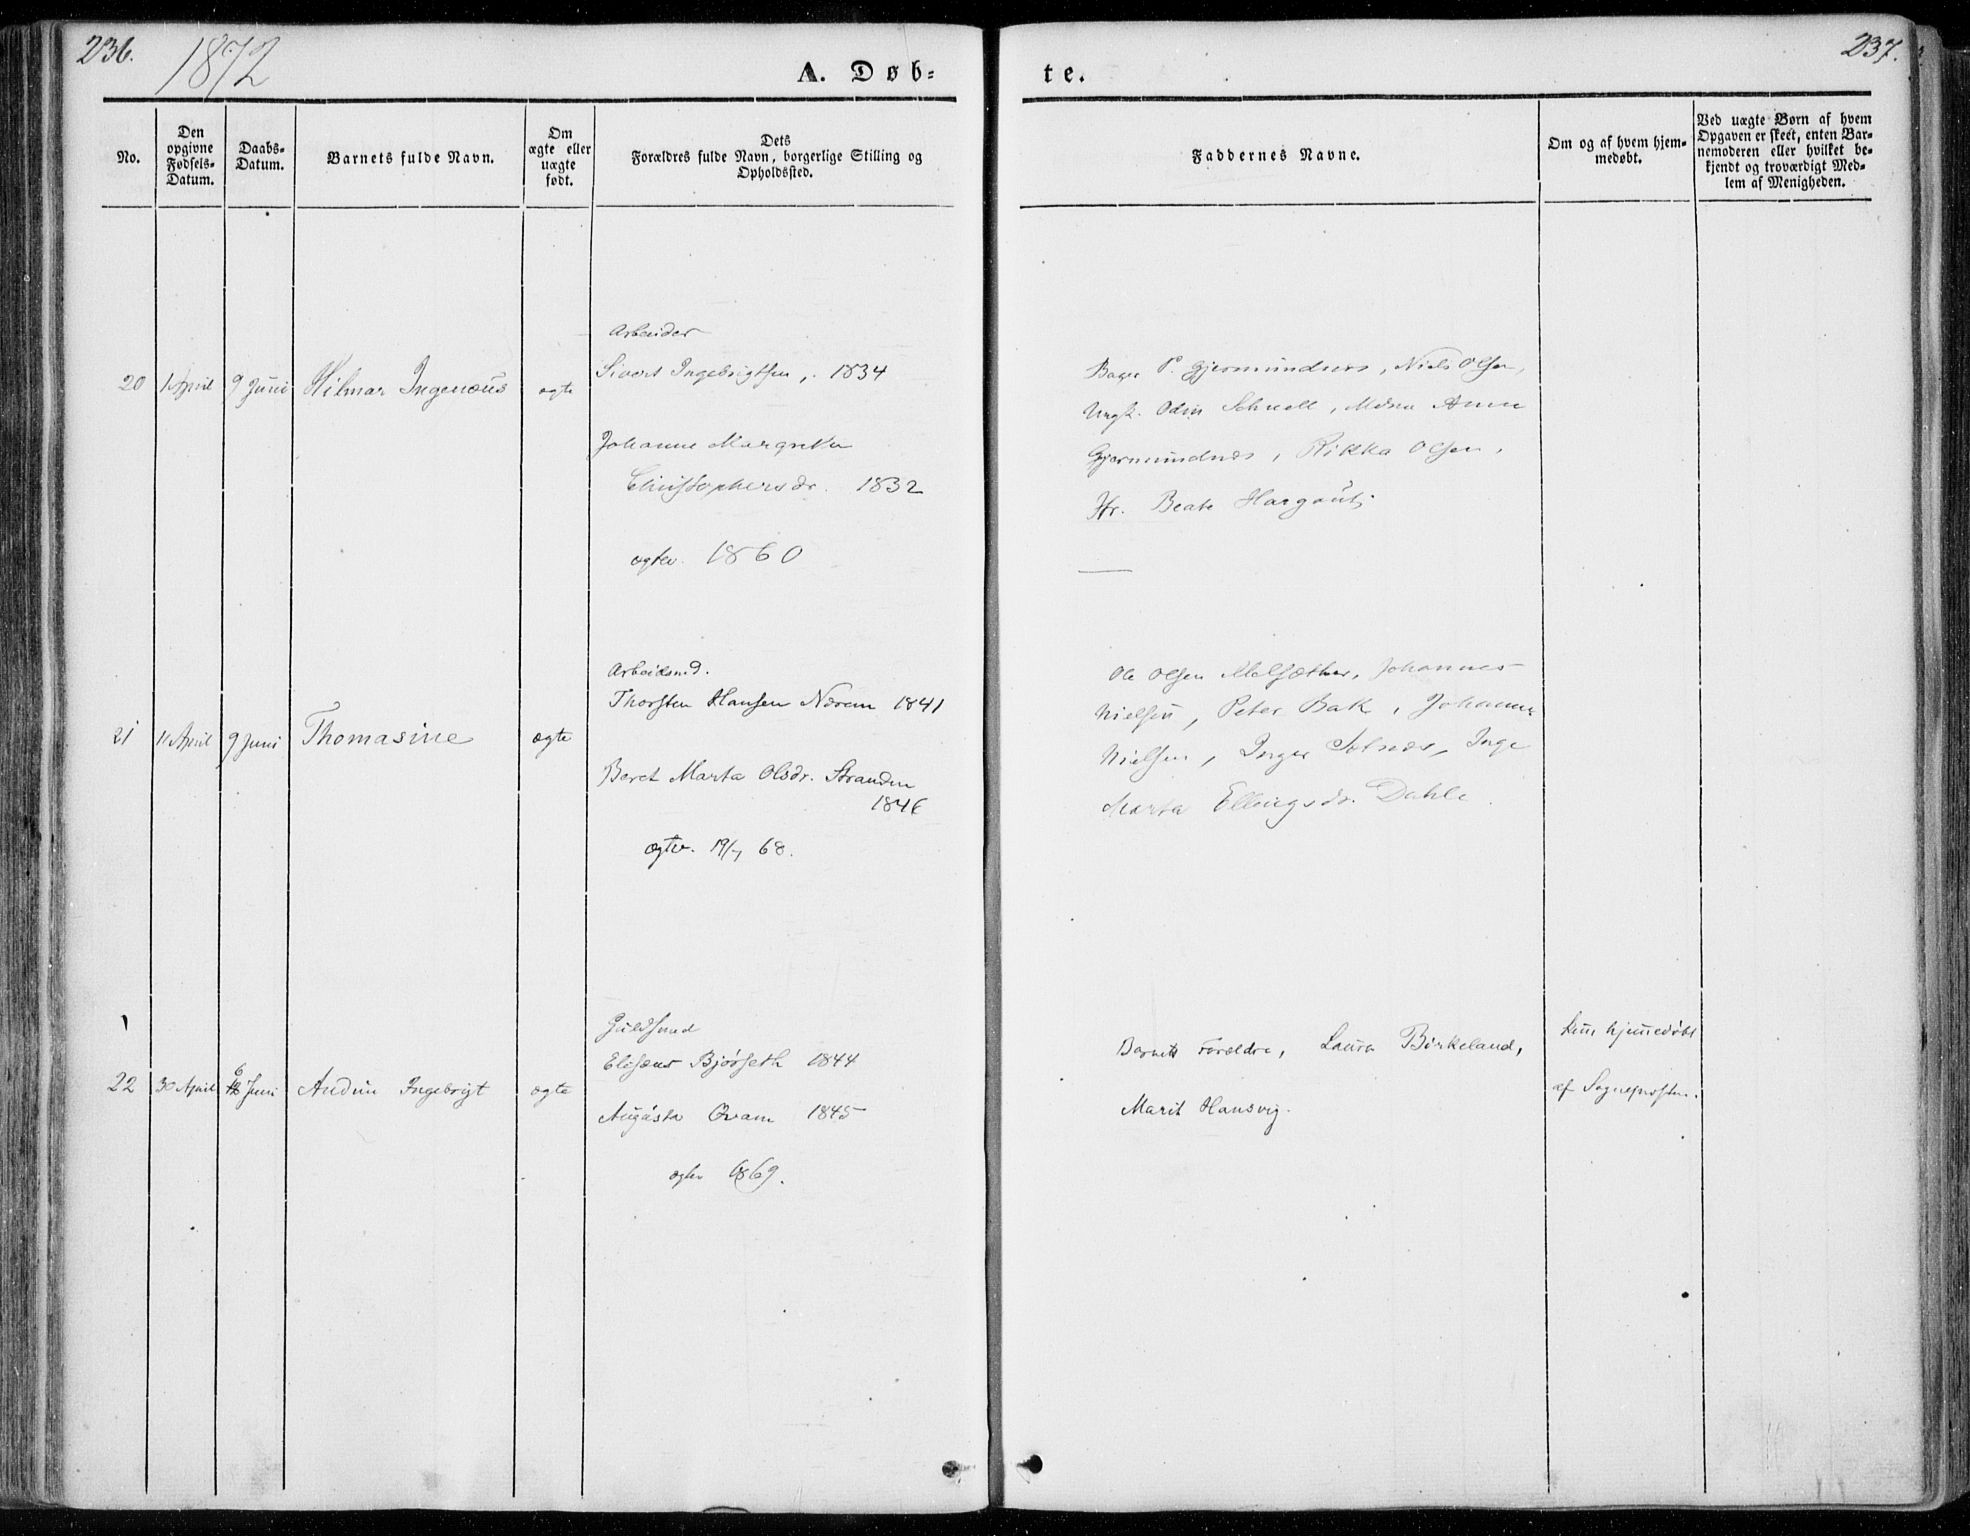 236.
1872
A. Døb=
te.
237.
No.
Den
opgivne
Fødsels-
Datum.
Daabs-
Datum.
Barnets fulde Navn.
Om
ægte eller
uægte
født.
Dets
Forældres fulde Navn, borgerlige Stilling og
Opholdssted.
Faddernes Navne.
Om og af hvem hjem-
medøbt.
Ved uægte Børn af hvem
Opgaven er skeet, enten Bar-
nemoderen eller hvilket be-
kjendt og troværdigt Med-
lem af Menigheden.
Arbeider
20 1 April 9 Juni Hilmar Ingenæus ægte Sivert Ingebrigtsen, 1834
Johanne Margreta
Christophersdr. 1832
ægtev. 1860
Bager P. Gjermundnes, Niels Olsen,
Ungk. Odin Schnell, Anne
Gjermundnes, Rikka Olsen,
Jfr. Beate
Arbeidsmd.
Thorsten Hansen Nærem 1841
21 11 April 9 Juni Thomasine ægte
Beret Marta Olsdr. Stranden
1846
ægtev. 19/7 68.
Ole Olsen Melsæther, Johannes
Nielsen, Peter Bak, Johanne
Nielsen, Inger Solnæs, Inge
Marta Ellingsdr. Dahle.
Guldsmed
Elisæus Bjørseth 1844
22 30 April 6 Juni Audun Ingebrigt ægte
Augusta Qvam 1845
ægtev 1869.
Barnets Forældre, Laura Birkeland,
Marit Hansvig.
hjemmedøbt
af Sognepresten.